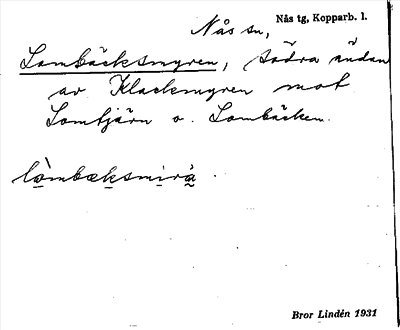 Nås sn, Nås tg, Kopparb. l.
Lombäcksmyren, södra ändan
av Klackmyren mot
Lomtjärn o. Lombäcken.
lòmbæksmirà.
Bror Lindén 1931